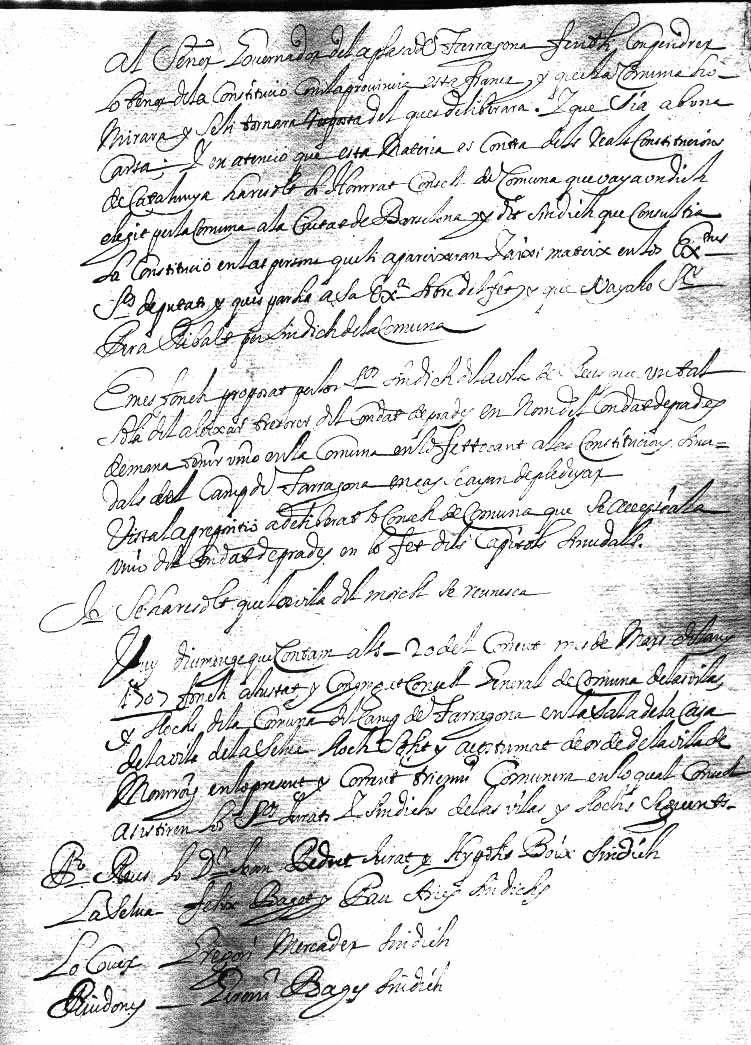 Al Señor Governador de la plasa de Tarragona fentli Compendrer
lo tenor de la Constitucio Com la provincia esta franca y que la Comuna ho
Mirara y seli tornara resposta del ques deliberara. Y que sia a bona
Carta; Y en atencio que esta Materia es Contra dels Reals Constitucions
de Cathalunya ha resolt lo Honrat Consell de Comuna que vaya un sindich
elegit per la Comuna a la Ciutat de Barcelona y dit sindich que Consultia
la Constitucio en las persona que li apareixeran Y aixi mateix en los Ex.mes
S.rs deputats y ques parlia a sa Ex.a sobre del fet y que Vaya lo S.r
Pera Ribalt per sindich de la Comuna
Emes fonch proposat per los S.rs sindich de la vila de Reus que un tal
Solà del aleixar tresorer del Condat de prades en Nom del Condat de prades
demana tenir unio en la Comuna en lo fet tocant a las Constitucions sinu=
dals del Camp de Tarragona en cas se ayan de pledejar
Vista la proposicio a deliberat lo Consell de Comuna que se accepta la
unio del Condat de prades en lo fet dels Capitols sinudals.
Se ha resolt que la vila del morell se reunesca
Vuy diumenge que Contam als 20 del Corrent mes de Mars del any
1707 fonch ajustat y Congregat Consell General de Comuna de las vilas
y llochs de la Comuna del Camp de Tarragona en la Sala de la Casa
de la vila de la Selva lloch solit y acostumat de orde de la vila de
Monrroig en lo present y Corrent trieni Comuner en lo qual Consell
assistiren los S.rs Jurats y Sindichs de las vilas y llochs seguents
P.o Reus lo D.r Joan Pedret Jurat y Boix sindich
La Selva Felix Baget y Pau Aries sindichs
Lo Cover Gregori Mercader sindich
Riudoms Geroni Bages sindich